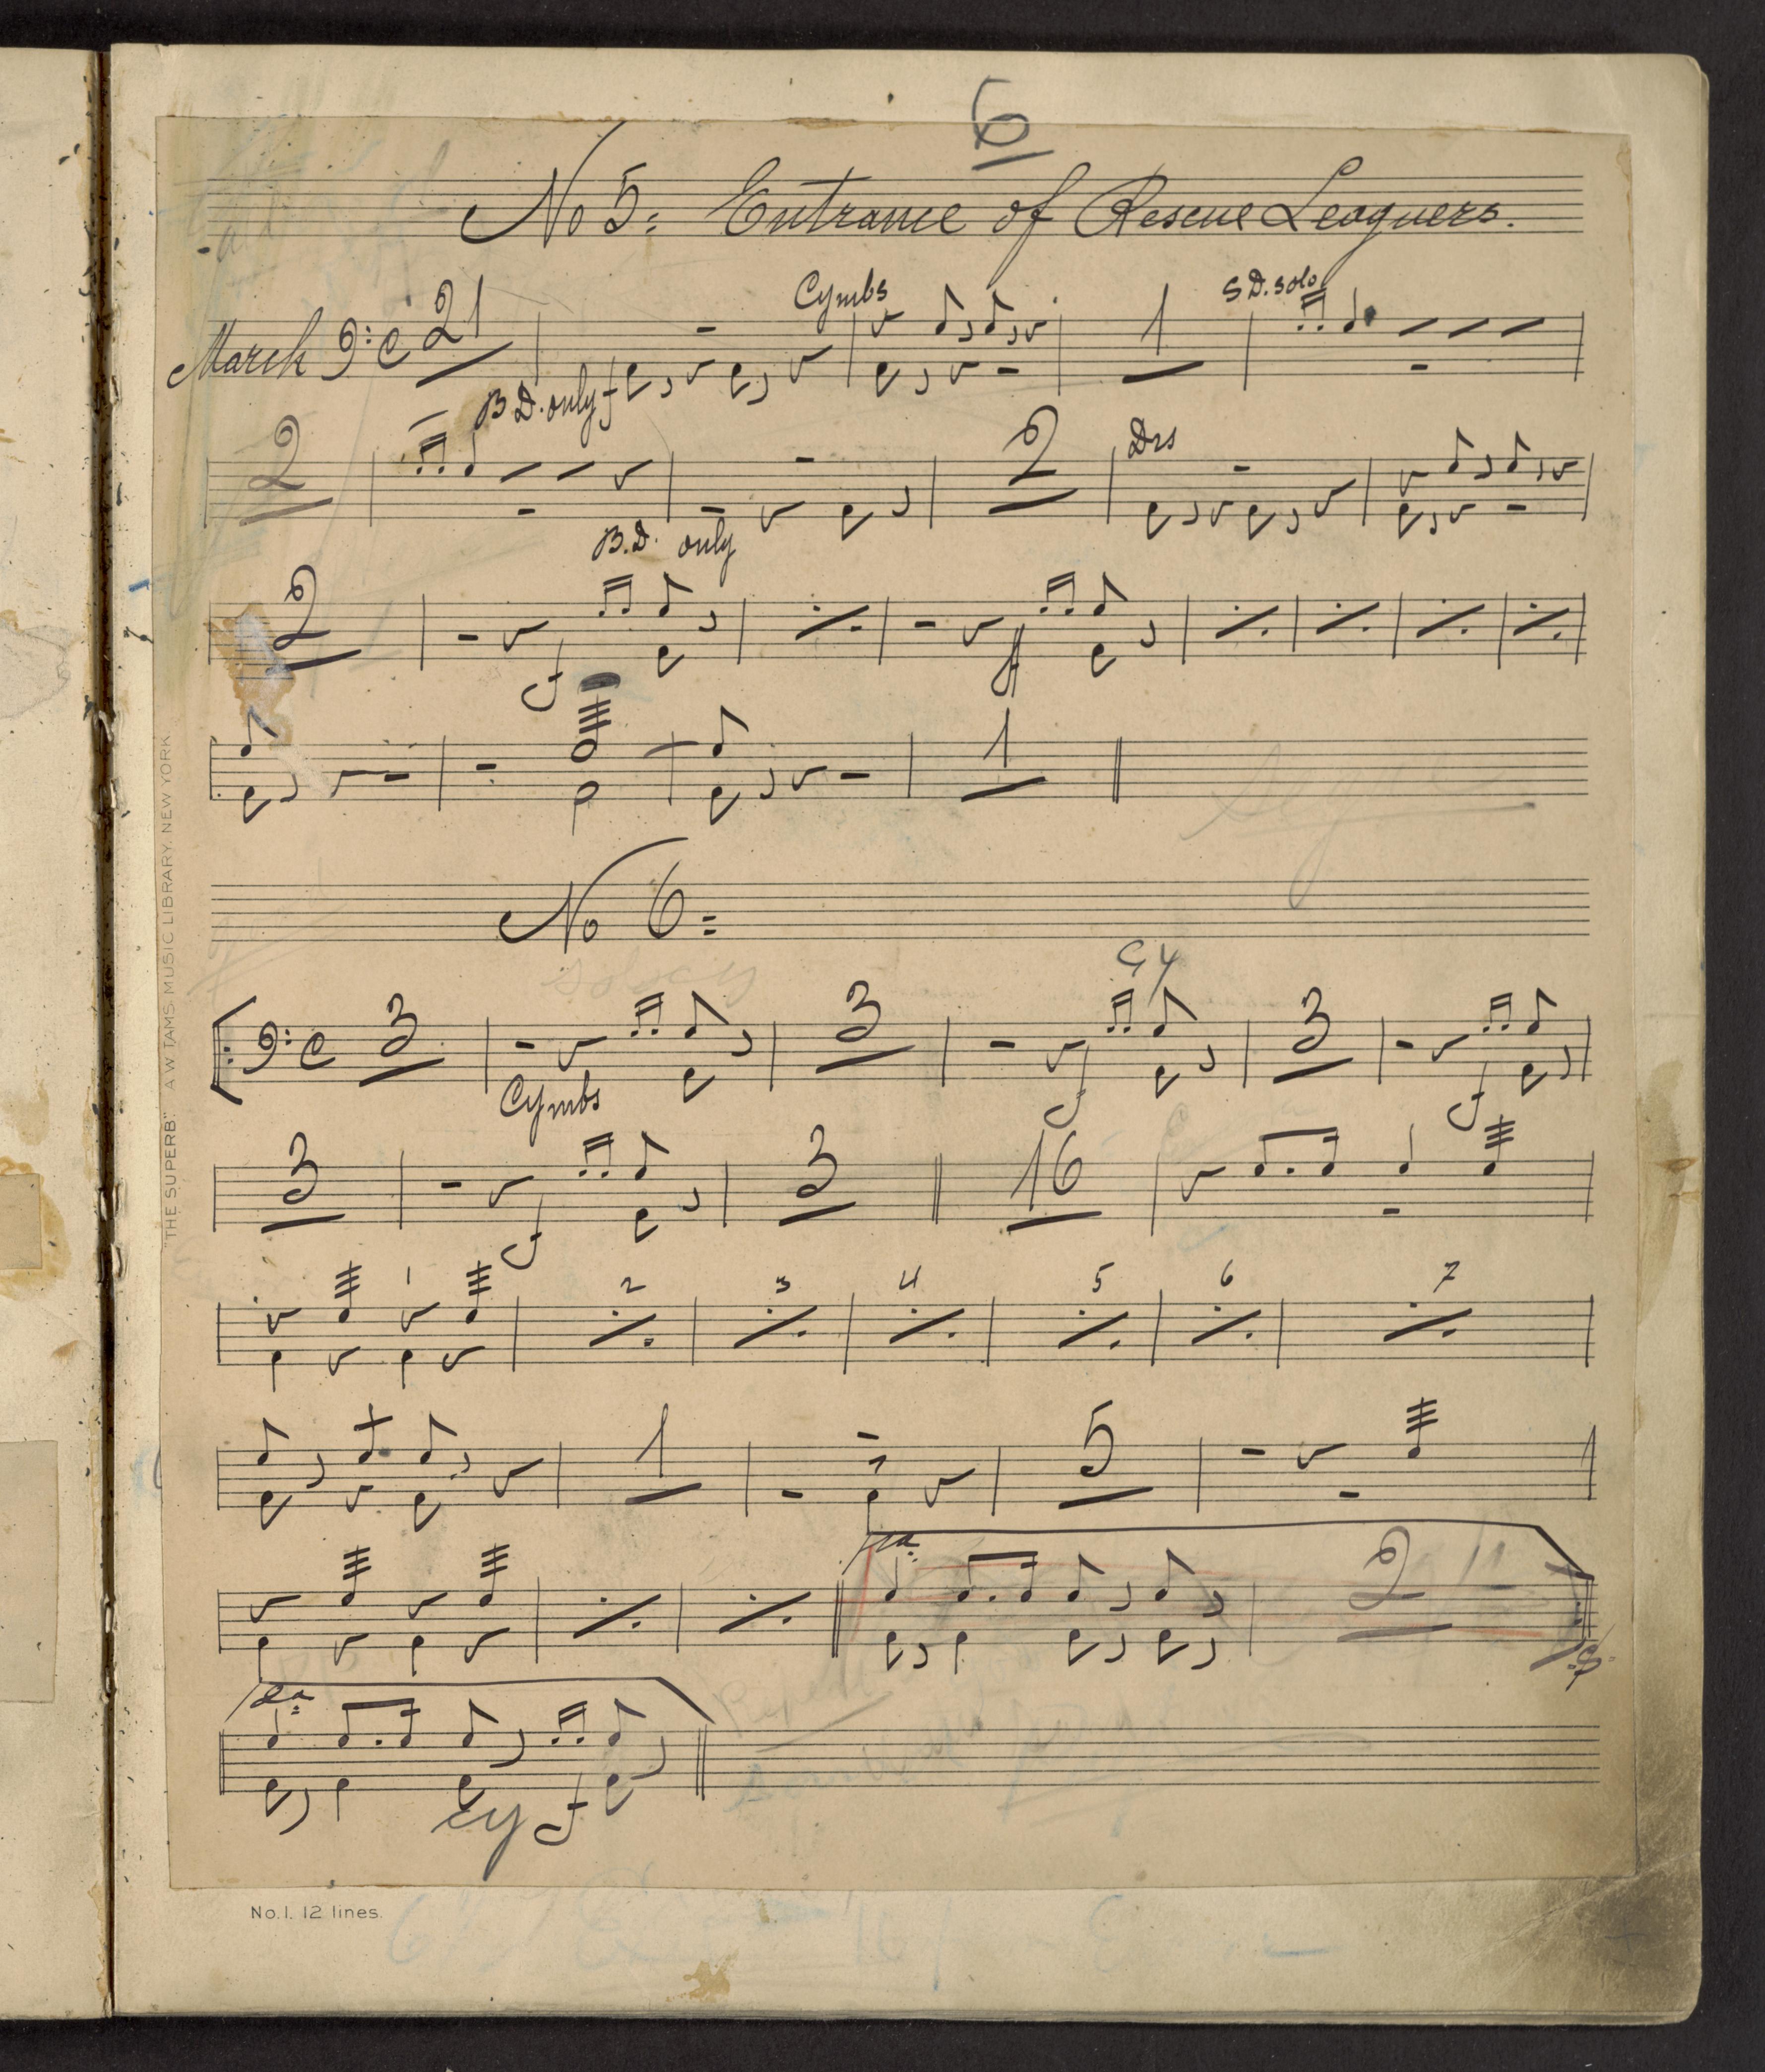 6
No 5: Entrance of Rescue Leaguers.
Cymbs S.D. solo
March C 21 1
B.D. only f
2 2 Drs
B.D. only
2
f ff
1
Segue
No 6=
Cy
C 3 3 3
Cymbs f f
3 3 16
f
1 2 3 4 5 6 7
1 5
1a
2
2a
Repeat
Cy f
"THE SUPERB." A.W. TAMS. MUSIC LIBRARY. NEW YORK
No. 1. 12 lines.